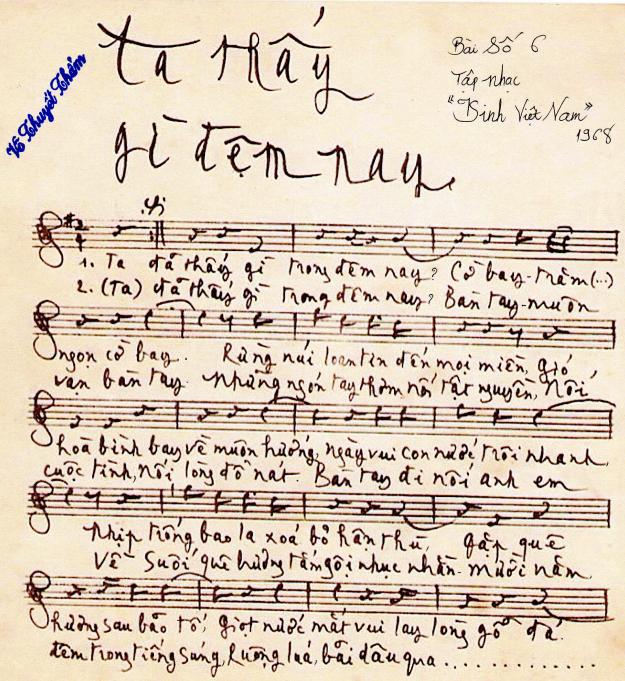 Võ Thuyết Thảm
Ta thấy
gì đêm nay
Bài số 6
Tập nhạc
"Kinh Việt Nam"
1968
1. Ta đã thấy gì trong đêm nay? Cờ bay trăm (...)
2. (Ta) đã thấy gì trong đêm nay? Bàn tay muôn
ngọn cờ bay. Rừng núi loan tin đến mọi miền, gió
vạn bàn tay. Những ngón tay thơm nối tật nguyền, Nối
hoà bình bay về muôn hướng, ngày vui con nước trôi nhanh,
cuộc tình, nối lòng đổ nát. Bàn tay đi nối anh em
Nhịp trống bao la xoá bỏ hận thù, gặp quê
Về suối quê hương tắm gội nhục nhằn. Mười năm
hương sau bão tố, giọt nước mắt vui lay lòng gỗ đá.
đêm trong tiếng súng, Ruộng lúa, bãi dâu qua .............